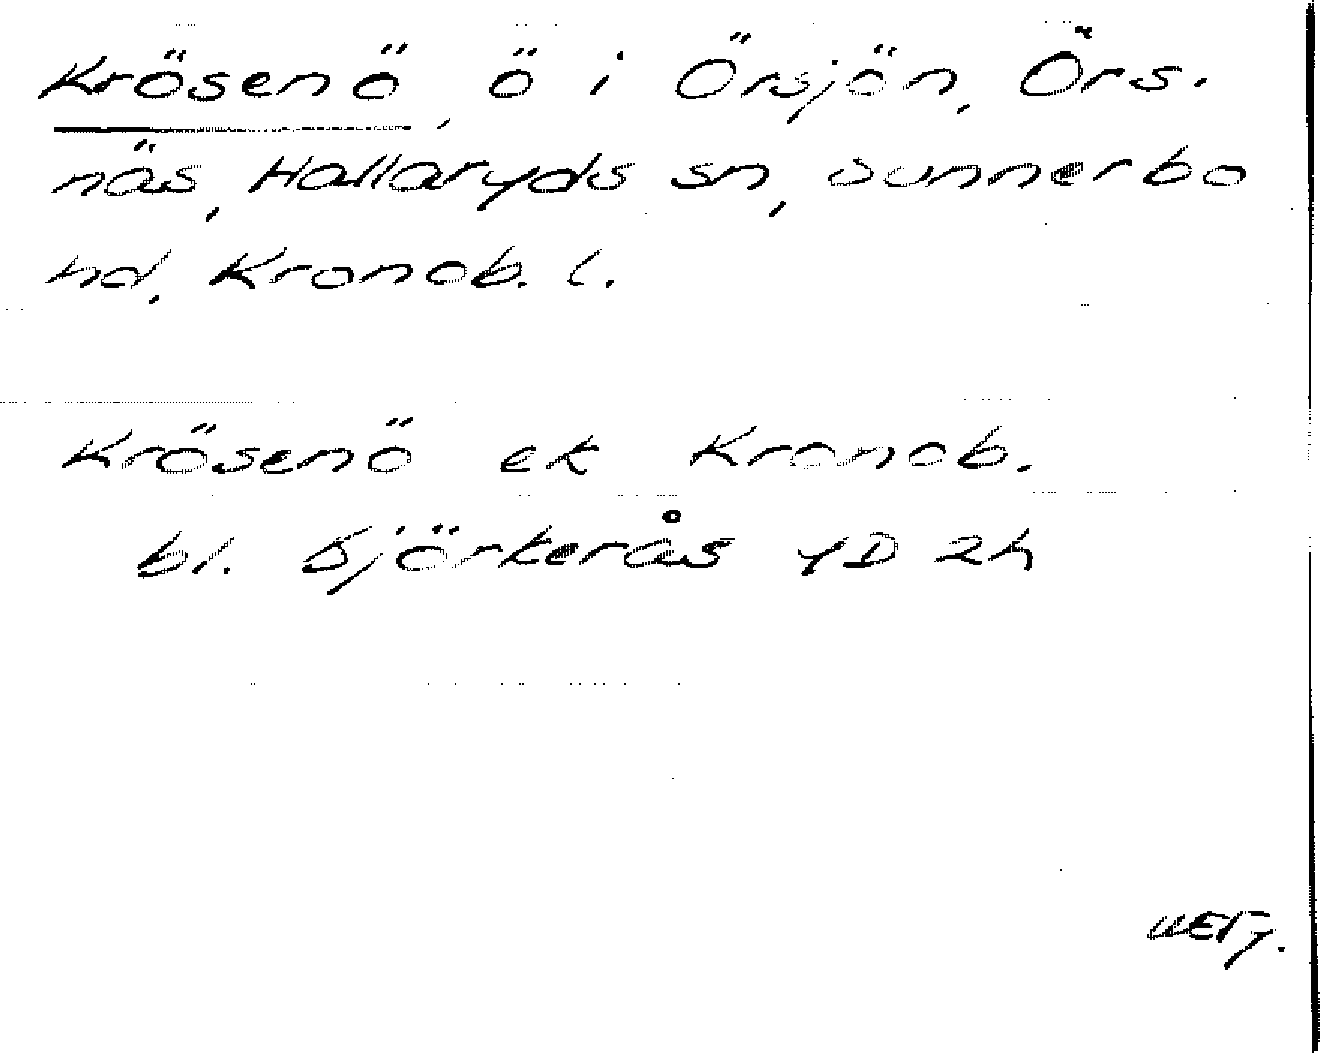 Krösenö, ö i Örsjön, Örs-
näs, Hallaryds sn, Sunnerbo
hd, Kronob. l.
Krösenö ek Kronob.
bl. Björkerås 4D 2h